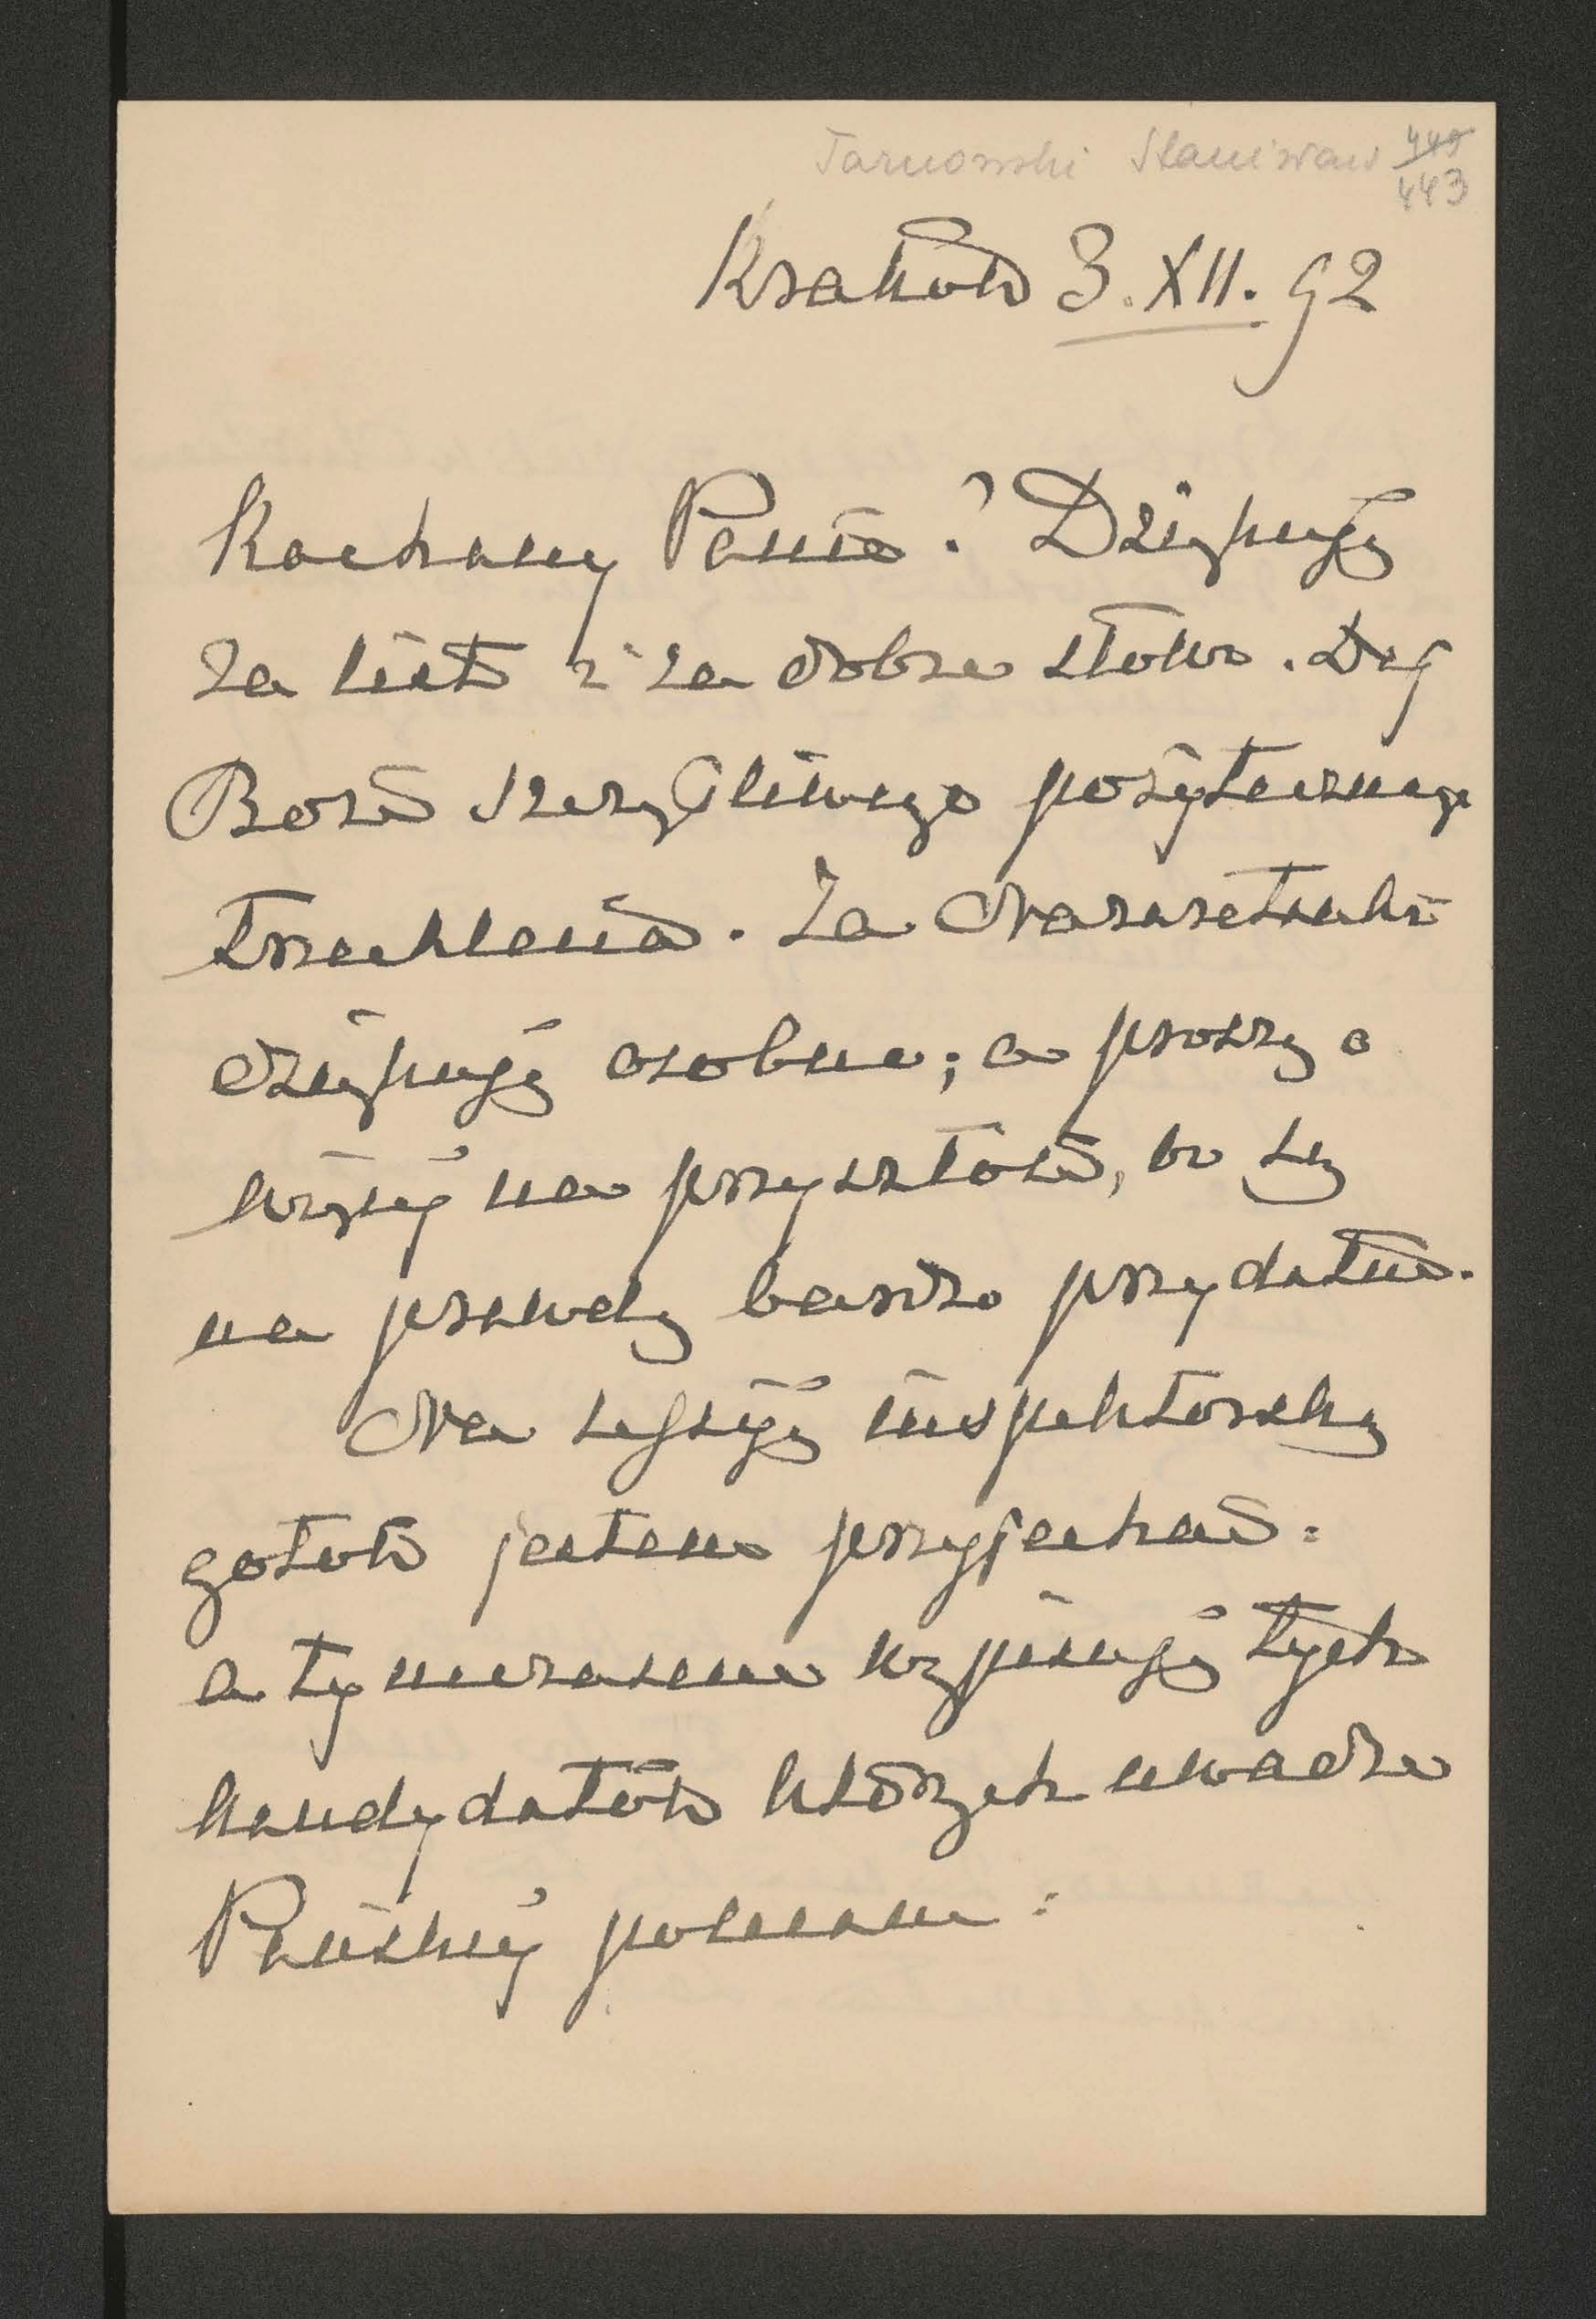 Tarnowski Stanisław 449
443
Kraków 3. XII. 92
Kochany Panie! Dziękuję
za list i za dobre słowo. Daj
Boże szczęśliwego pożytecznego
Za
dziękuję osobno; a proszę o
więcej na przyszłość, bo są
na prawdę bardzo przydatne.
Na sessyję inspektorską
gotów jestem przyjechać:
a tymczasem wypisuję tych
kandydatów których uwadze
Pańskiej polecam: